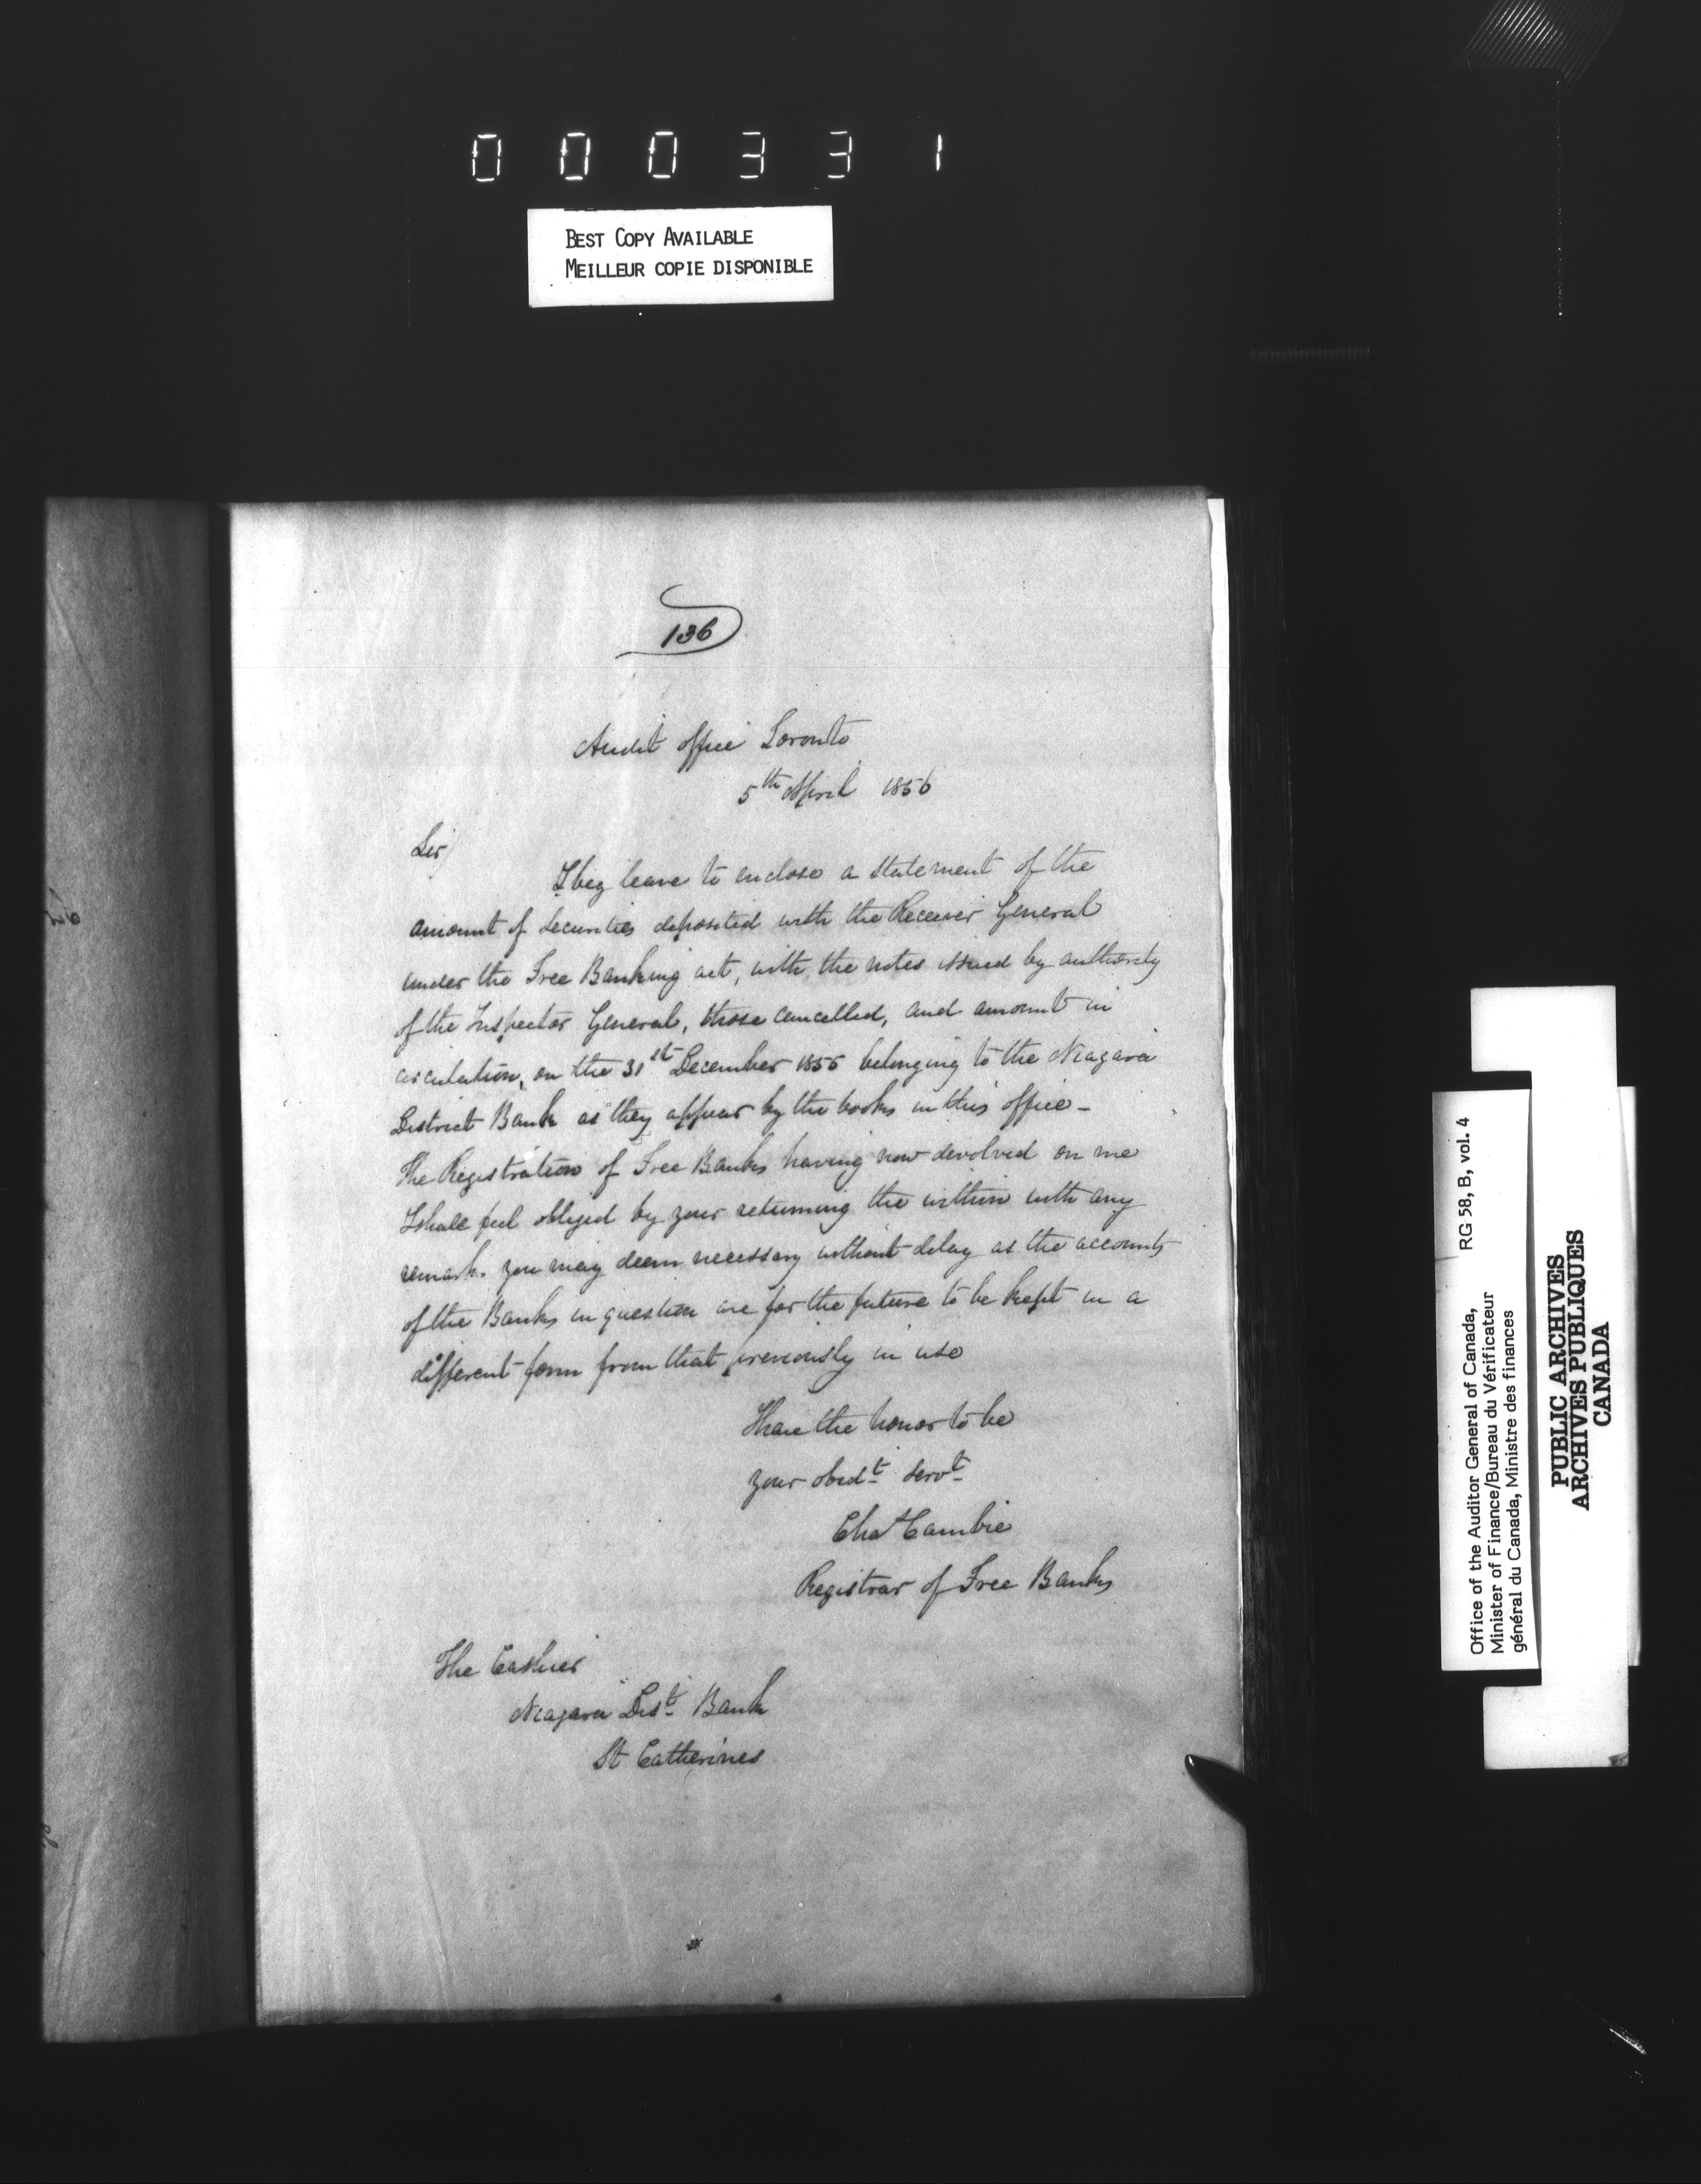 000331
BEST COPY AVAILABLE
MEILLEUR COPIE DISPONIBLE
136
Audit office Toronto
5th April 1856
Sir
I beg leave to enclose a statement of the
amount of Securities deposited with the Receiver General
under the Free Banking act, with the notes issued by authority
of the Inspector General, those cancelled, and amount in
circulation, on the 31st December 1855 belonging to the Niagara
District Bank as they appear by the books in this office -
The Registration of Free Banks having now devolved on me
I shall feel obliged by your returning the within with any
remarks you may deem necessary without delay as the accounts
of the Banks in question are for the future to be kept in a
different form from that previously in use
I have the honor to be
your obedt servt
Chas Cambie
Registrar of Free Banks
The Cashier
Niagara Dist Bank
St Catherines
Office of the Auditor General of Canada,
Minister of Finance/Bureau du Vérificateur
général du Canada, Ministre des finances
RG 58, B, vol. 4
PUBLIC ARCHIVES
ARCHIVES PUBLIQUES
CANADA